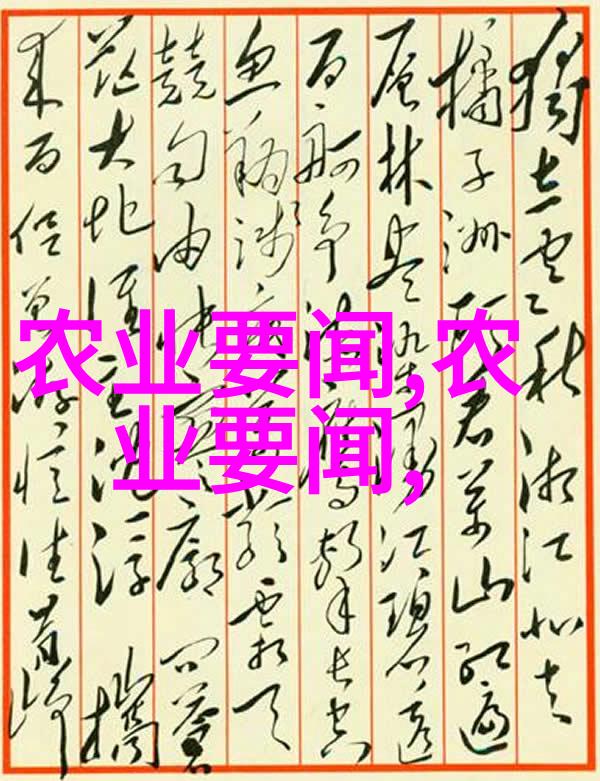 獨立寒秋湘江北去
橘子洲头看万山红遍
层林尽染漫江碧透
百舸争流鹰击长空
鱼翔浅底万类霜天
競自由怅寥廓问苍
茫大地谁主沉浮携
来百侣曾游忆往昔峥
农业要闻,农
业要闻,